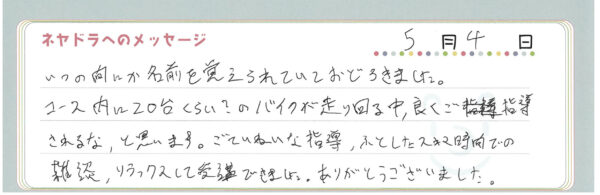 ネヤドラへのメッセージ
5月4日
いつの間にか名前を覚えられていておどろきました。
コース内に20台くらい?のバイクが走り回る中、良くご指導
されるな、と思います。ごていねいな指導、ふとしたスキマ時間での
雑談、リラックスして受講できました。ありがとうございました。